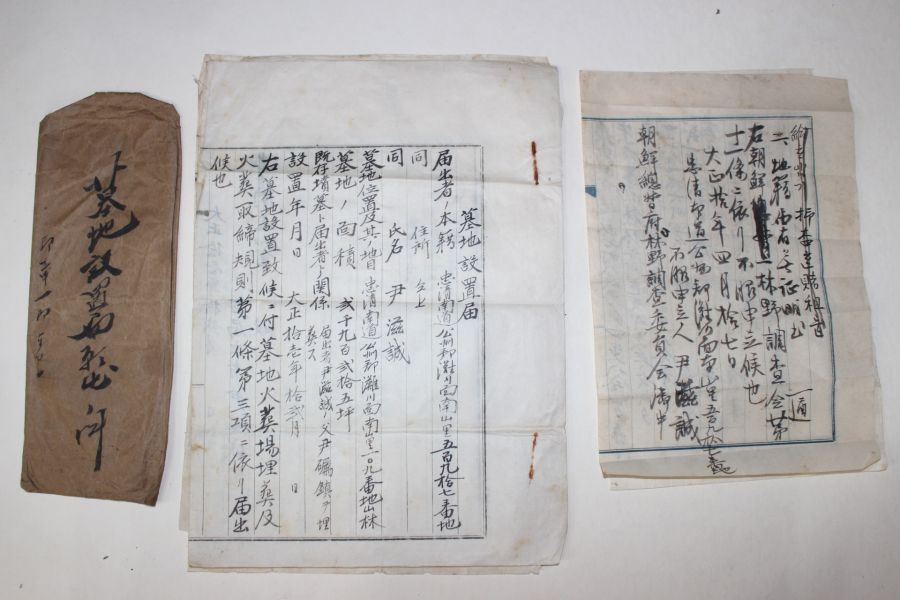 墓地設置届
届出者ノ本籍 忠清南道公州郡灘川面南山里五百九拾七番地
同 住所 仝上
同 氏名 尹滋誠
墓地ノ位置及其ノ地目 忠清南道公州郡灘川面南山里一〇九番地山林
墓地ノ面積 弐千九百弐拾五坪
既存墳墓ト届出者トノ関係 届出者尹滋誠ノ父尹 鎮ヲ埋
葬ス
設置年月日 大正拾壱年拾弐月 日
右墓地設置致候ニ付墓地火葬場埋葬及
火葬取締規則第一條第三項ニ依リ届出
候也
二、地籍 証明 一通
右朝鮮 林野調査令第
十一條ニ依リ不服申立候也
大正拾年四月拾七日
忠清南道公州郡灘川面南山里五九七番地
不服申立人 尹滋誠
朝鮮總督府林野調査委員会御中
墓地設置